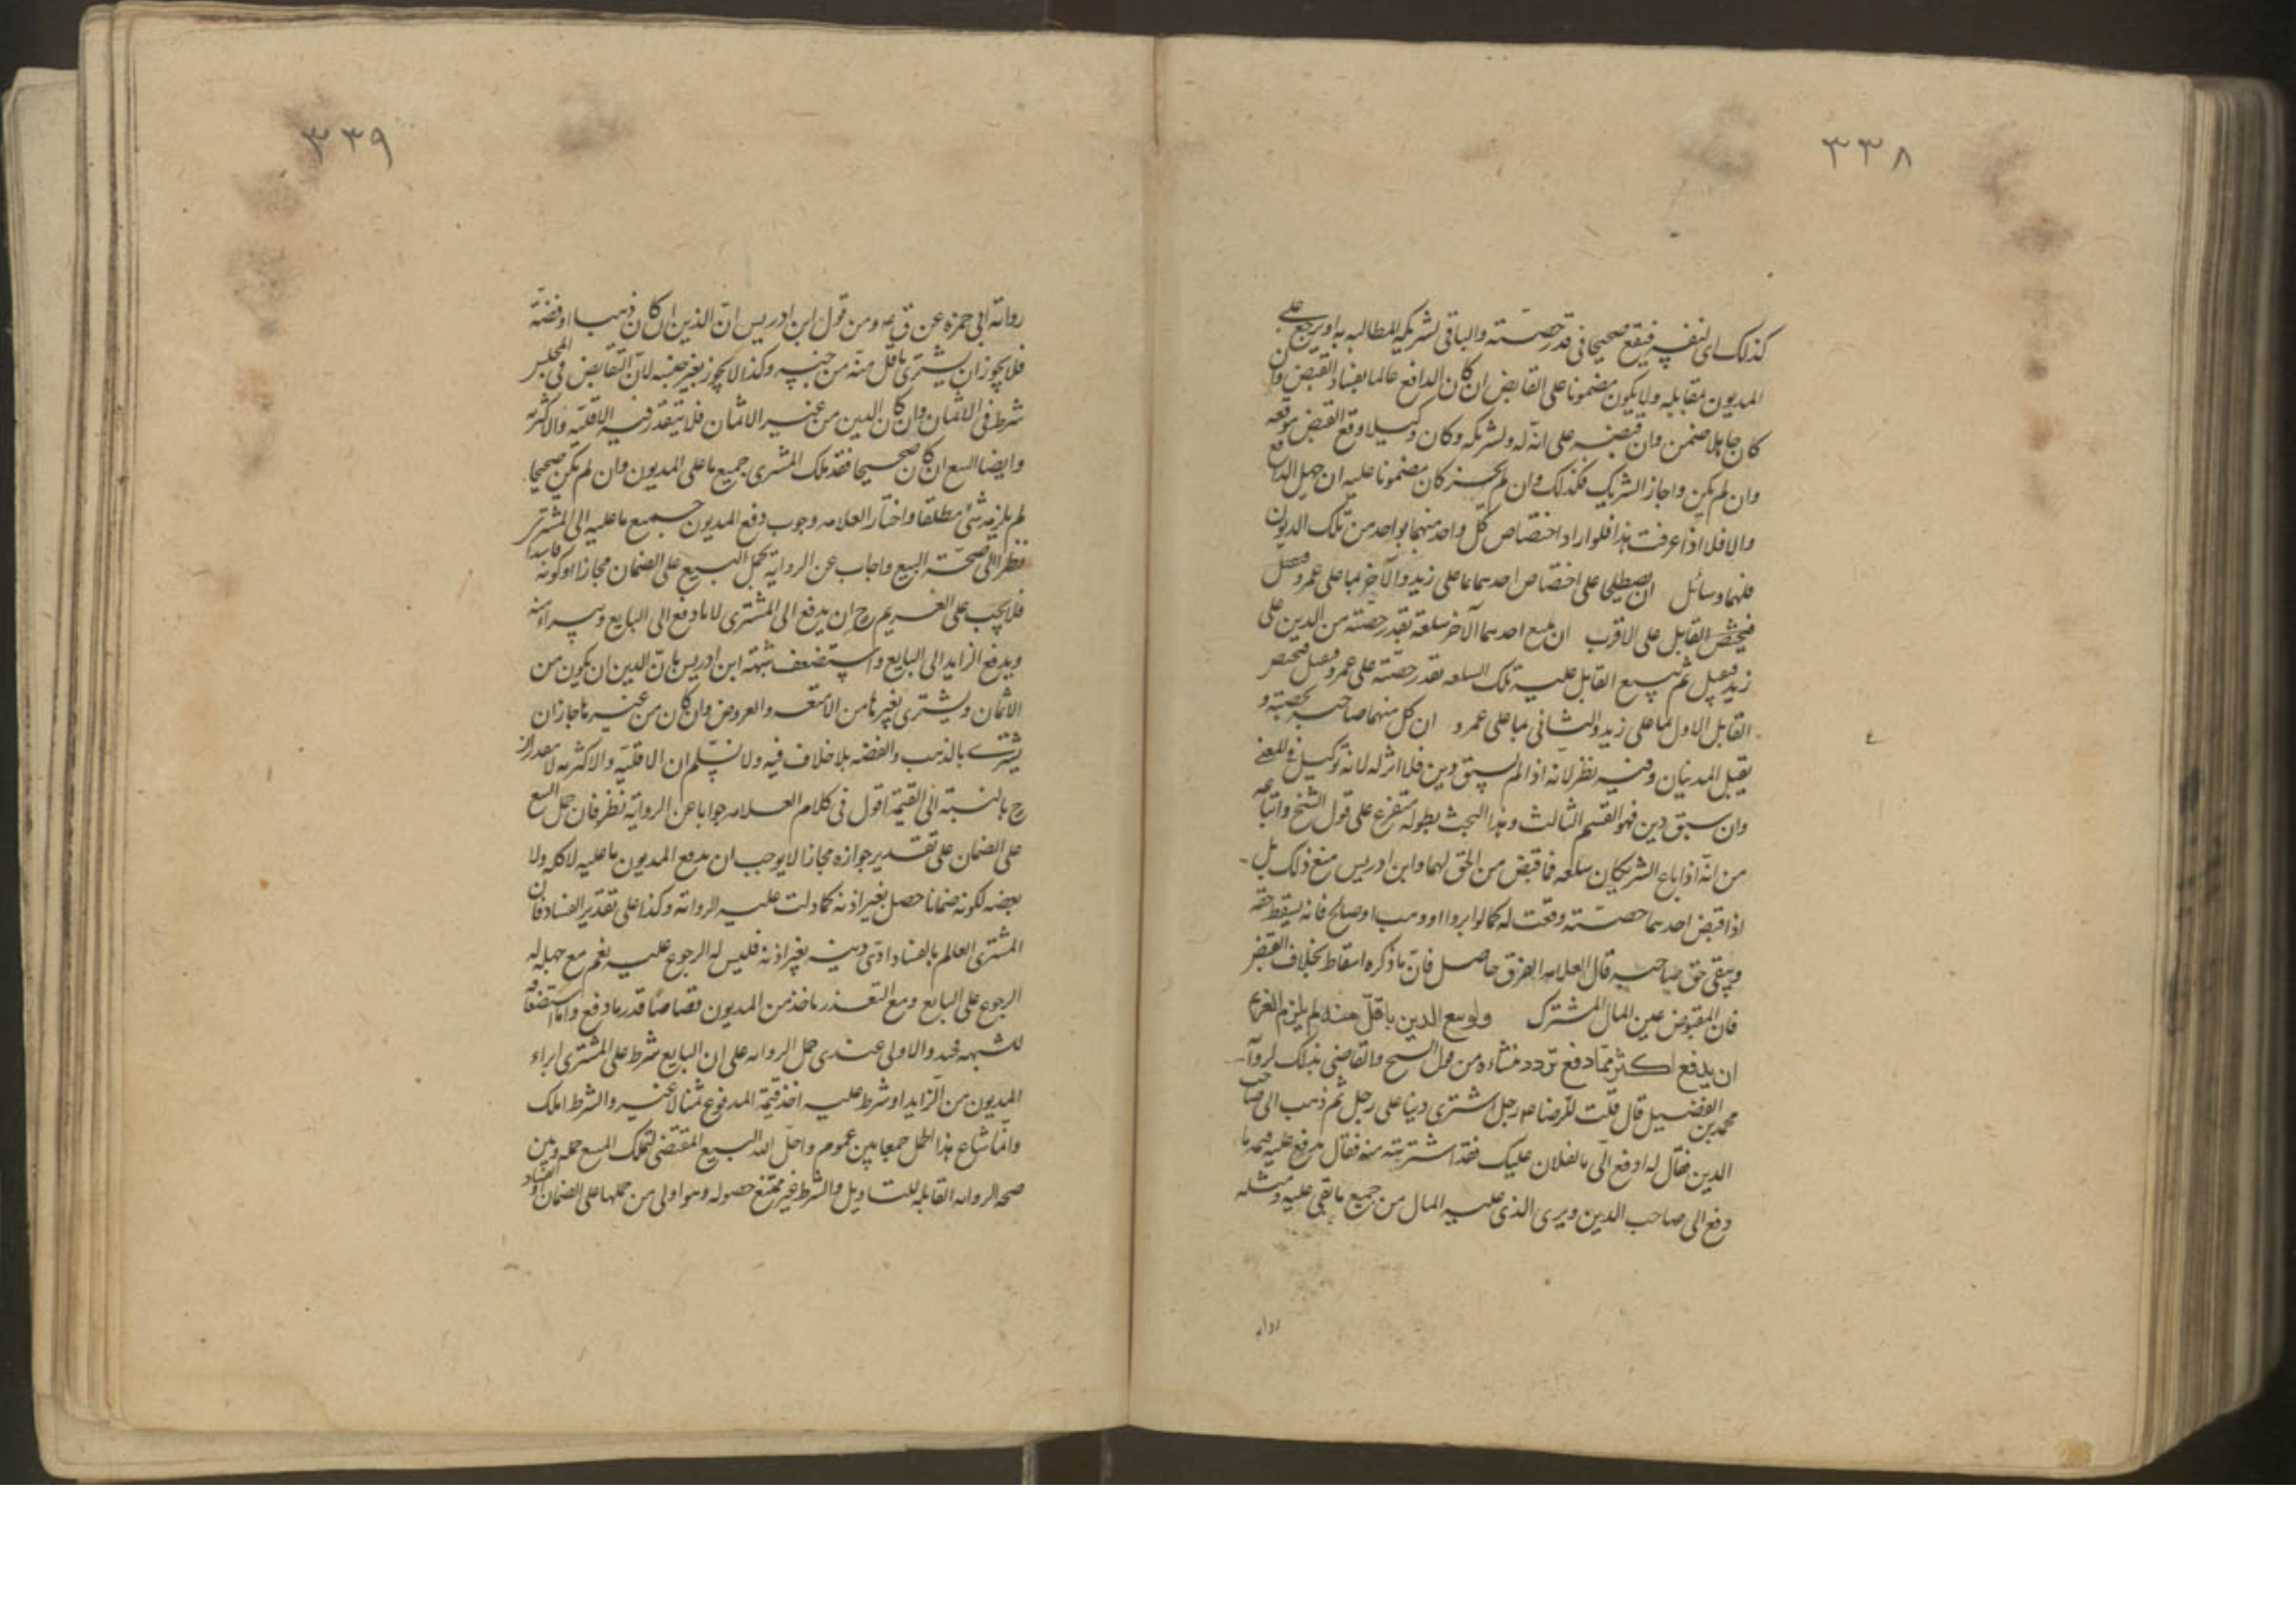 ٣٣٨
كذلك اى لنفسه فيقع صحيحا فى قدر حصته والباقى لشريكه للمطالبه به او يرجع على
المديون مقابله ولا يكون مضمونا على القابض ان كان الدافع عالما بفساد القبض وان
كان جاهلا ضمن وان قبضه على انه له ولشريكه وكان وكيلا وقع القبض موقعه
وان لم يكن واجاز الشريك فكذلك وان لم يجز كان مضمونا عليه ان جهل الدافع
والا فلا اذا عرفت هذا فلو اراد اختصاص كل واحد منهما بواحد من تلك الديون
فلهما وسائل ان يصطلحا على اختصاص احدهما بما على زيد والآخر بما على عمرو
فيختص القابل على الاقرب ان يبيع احدهما الآخر سلعة بقدر حصته من الدين على
زيد فيقبل ثم يبيع القابل عليه تلك السلعه بقدر حصته على عمرو
القابل الاول بما على زيد والثانى بما على عمرو ان كل منهما صاحبه بحصته و
يقبل المدينان وفيه نظر لانه اذا لم يسبق دين فلا اثر له لانه توكيل
وان سبق دين فهو القسم الثالث وهذا البحث بطوله متفرع على قول الشيخ واتباعه
من انه اذا باع الشريكان سلعه فما قبض من الحق لهما وابن ادريس منع ذلك بل
اذا قبض احدهما حصته وقعت له كما لو ابروا او وهب او صالح فانه يسقط حقه
ويبقى حق صاحبه قال العلامه الفرق حاصل فان ما ذكره اسقاط بخلاف القبض
فان المقبوض عين المال المشترك ولو بيع الدين باقل منه لم يلزم الغريم
ان يدفع اكثر مما دفع تردد منشاءه من قول الشيخ والقاضى بذلك لرواية
محمد بن الفضيل قال قلت للرضا ع رجل اشترى دينا على رجل ثم ذهب الى صاحب
الدين فقال له ادفع الى ما لفلان عليك فقد اشتريته منه فقال يدفع عليه قيمة ما
دفع الى صاحب الدين وبرئ الذى عليه المال من جميع ما بقى عليه ومثله
روايه
٣٣٩
رواية ابى حمزه عن ق ع ومن قول ابن ادريس ان الدين ان كان ذهبا او فضة
فلا يجوز ان يشترى باقل منه من جنسه وكذا لا يجوز بغير جنسه لان التقابض فى المجلس
شرط فى الاثمان وان كان الدين من غير الاثمان فلا يتقدر فيه الاقليه والاكثريه
وايضا البيع ان كان صحيحا فقد ملك المشترى جميع ما على المديون وان لم يكن صحيحا
لم يلزمه شئ مطلقا واختار العلامه وجوب دفع المديون جميع ما عليه الى المشترى
نظرا الى صحة البيع واجاب عن الرواية بحمل البيع على الضمان مجازا او كونه فاسدا
فلا يجب على الغريم ح ان يدفع الى المشترى الا ما دفع الى البايع ويبرا منه
ويدفع الزايد الى البايع واستضعف شبهة ابن ادريس بان الدين ان يكون من
الاثمان ويشترى بغيرها من الامتعه والعروض وان كان من غيرها جاز ان
يشترى بالذهب والفضه بلا خلاف فيه ولا نسلم ان الاقليه والاكثريه لا
ح بالنسبة الى القيمة اقول فى كلام العلامه جوابا عن الرواية نظر فان حمل البيع
على الضمان على تقدير جوازه مجازا لا يوجب ان يدفع المديون ما عليه لا كله ولا
بعضه لكونه ضمانا حصل بغير اذنه كما دلت عليه الرواية وكذا على تقدير الفساد فان
المشترى العالم بالفساد ادى دينه بغير اذنه فليس له الرجوع عليه نعم مع جهله له
الرجوع على البايع ومع التعذر ياخذ من المديون قصاصا قدر ما دفع واما استضعافه
للشبهه فجيد والاولى عندى حمل الروايه على ان البايع شرط على المشترى ابراء
المديون من الزايد او شرط عليه اخذ قيمة المدفوع ثمنا لا غير والشرط املك
وانما شاع هذا الحمل جمعا بين عموم واحل الله البيع المقتضى لتملك المبيع جمله وبين
صحه الروايه القابله للتاويل والشرط غير ممتنع حصوله وهو اولى من حملها على الضمان او الفساد